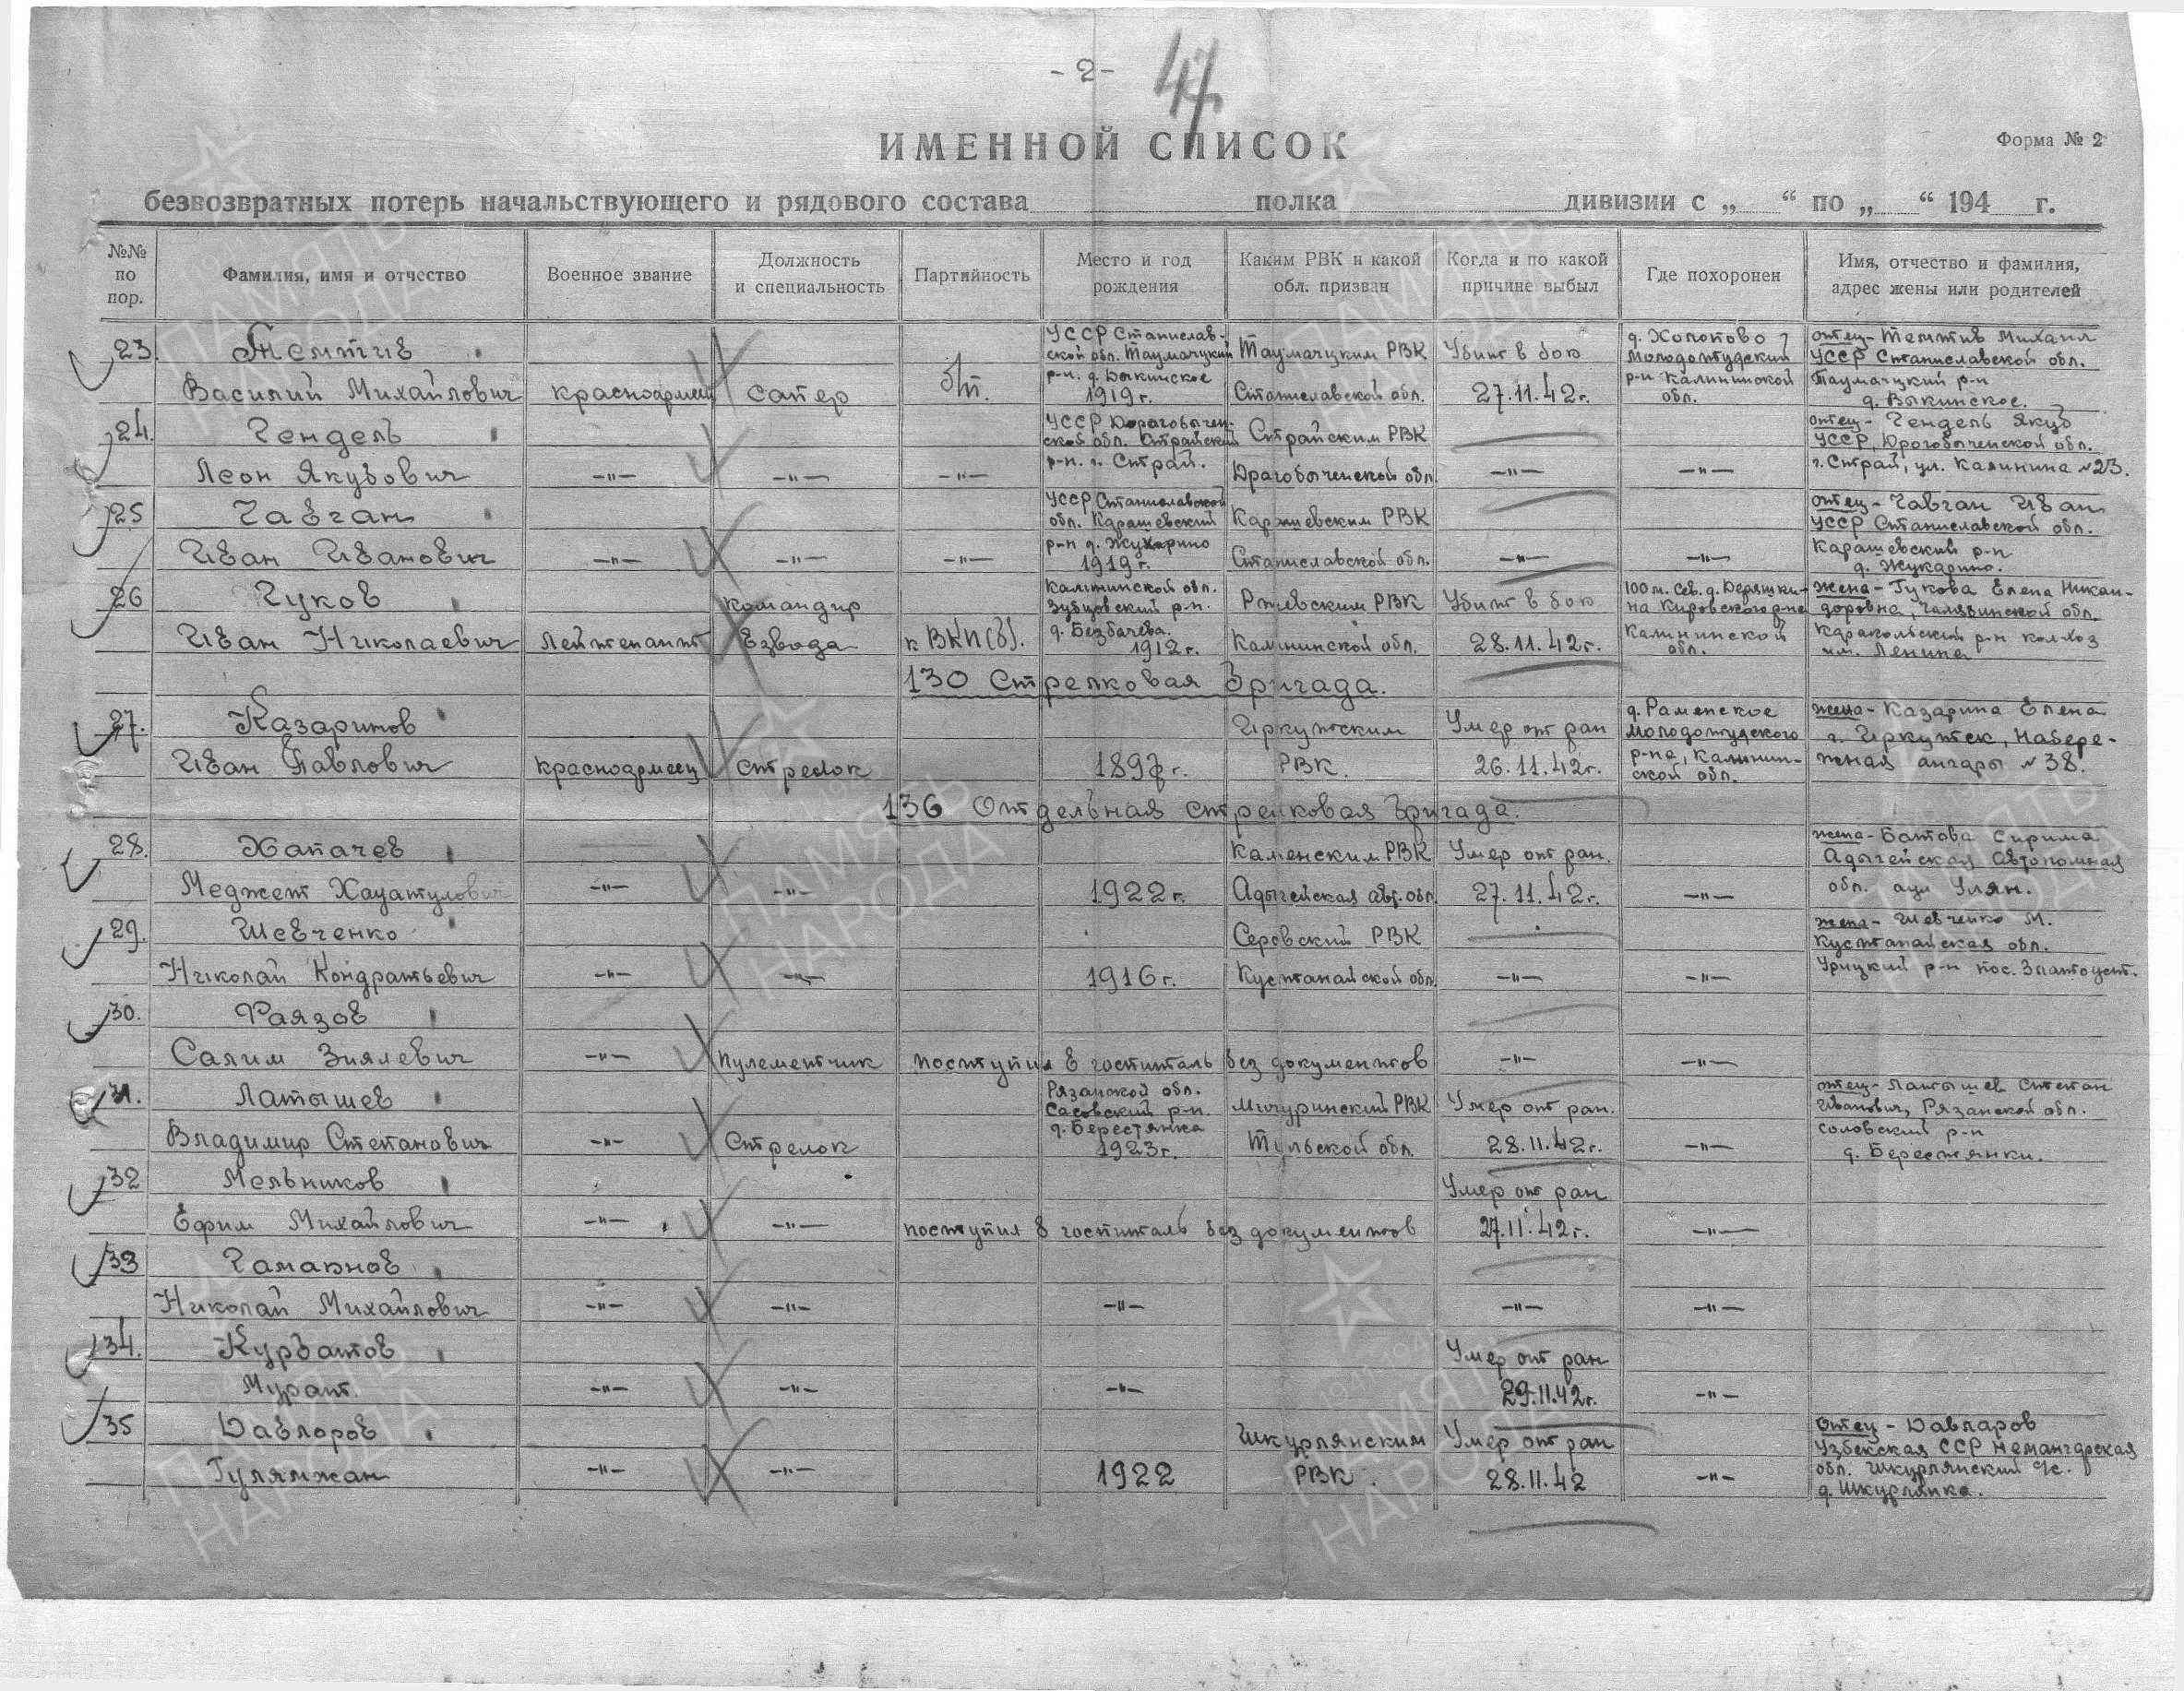 - 2 -
47
ИМЕННОЙ СПИСОК
Форма № 2
безвозвратных потерь начальствующего и рядового состава полка дивизии с „ “ по „ “ 194 г.
№№ по пор.
Фамилия, имя и отчество
Военное звание
Должность и специальность
Партийность
Место и год рождения
Каким РВК и какой обл. призван
Когда и по какой причине выбыл
Где похоронен
Имя, отчество и фамилия, адрес жены или родителей
23. Темтив
Василий Михайлович
красноармеец
сапер
б/п.
УССР Станислав-
ской обл. Таумачуким
р-н. д. Выкинское
1919 г.
Таумачуким РВК
Станиславской обл.
Убит в бою
27.11.42 г.
д. Холопово
Молодотудский
р-н Калининской
обл.
отец - Темтив Михаил
УССР Станиславской обл.
Таумачуцкий р-н
д. Выкинское.
24. Гендель
Леон Якубович
—"—
—"—
—"—
УССР Дорогобычен-
ской обл. Страйский
р-н. г. Страй.
Страйским РВК
Драгобыченской обл
—"—
—"—
отец - Гендель Якуб
УССР, Дрогобыченской обл.
г. Страй, ул. Калинина №23.
25 Гавган
Иван Иванович
—"—
—"—
—"—
УССР Станиславской
обл. Карашевский
р-н д. Жукарино
1919 г.
Каршевским РВК
Станиславской обл.
—"—
—"—
отец - Гавган Иван
УССР Станиславской обл.
Карашевский р-н
д. Жукарино.
26 Гуков
Иван Николаевич
Лейтенант
командир
взвода
к ВКП(б).
Калининской обл.
Зубцовский р-н.
д. Безбачева.
1912 г.
Ржевским РВК
Калининской обл.
Убит в бою
28.11.42 г.
100 м. сев. д. Деряшки-
на Кировского р-на
Калининской
обл.
жена - Гукова Елена Никан-
доровна, Челябинской обл.
Каракольский р-н колхоз
им. Ленина
130 Стрелковая Бригада.
27. Казаринов
Иван Павлович
красноармеец
стрелок
1897 г.
Иркутским
РВК.
Умер от ран
26.11.42 г.
д. Раменское
Молодотудского
р-на, Калинин-
ской обл.
жена - Казарина Елена
г. Иркутск, Набере-
жная ангары №38.
136 Отдельная стрелковая бригада.
28. Хапачев
Меджет Хауатулович
—"—
—"—
1922 г.
Каменским РВК
Адыгейская авт. обл
Умер от ран.
27.11.42 г.
—"—
жена - Батова Сирима
Адыгейская автономная
обл. аул Улян.
29. Шевченко
Николай Кондратьевич
—"—
—"—
1916 г.
Серовский РВК
Кустанайской обл.
—"—
—"—
жена - Шевченко М.
Кустанайская обл.
Урицкий р-н пос. Златоуст.
30. Фаязов
Салим Зиялевич
—"—
пулеметчик
поступил в госпиталь без документов
—"—
—"—
31. Латышев
Владимир Степанович
—"—
Стрелок
Рязанской обл.
Сасовский р-н.
д. Берестянка
1923 г.
Мичуринский РВК
Тульской обл.
Умер от ран.
28.11.42 г.
—"—
отец - Латышев Степан
Иванович, Рязанской обл.
соловский р-н
д. Берестянки.
32 Мельников
Ефим Михайлович
—"—
—"—
поступил в госпиталь без документов
Умер от ран
27.11.42 г.
—"—
33 Гамаюнов
Николай Михайлович
—"—
—"—
—"—
—"—
—"—
34. Курбатов
Мурат.
—"—
—"—
—"—
Умер от ран
29.11.42 г.
—"—
35 Давлоров
Гулямжан
—"—
—"—
1922
Шкурлянским
РВК.
Умер от ран
28.11.42
—"—
Отец - Давларов
Узбекская ССР Немангарская
обл. Шкурлянский
д. Шкурлянка.
ПАМЯТЬ НАРОДА